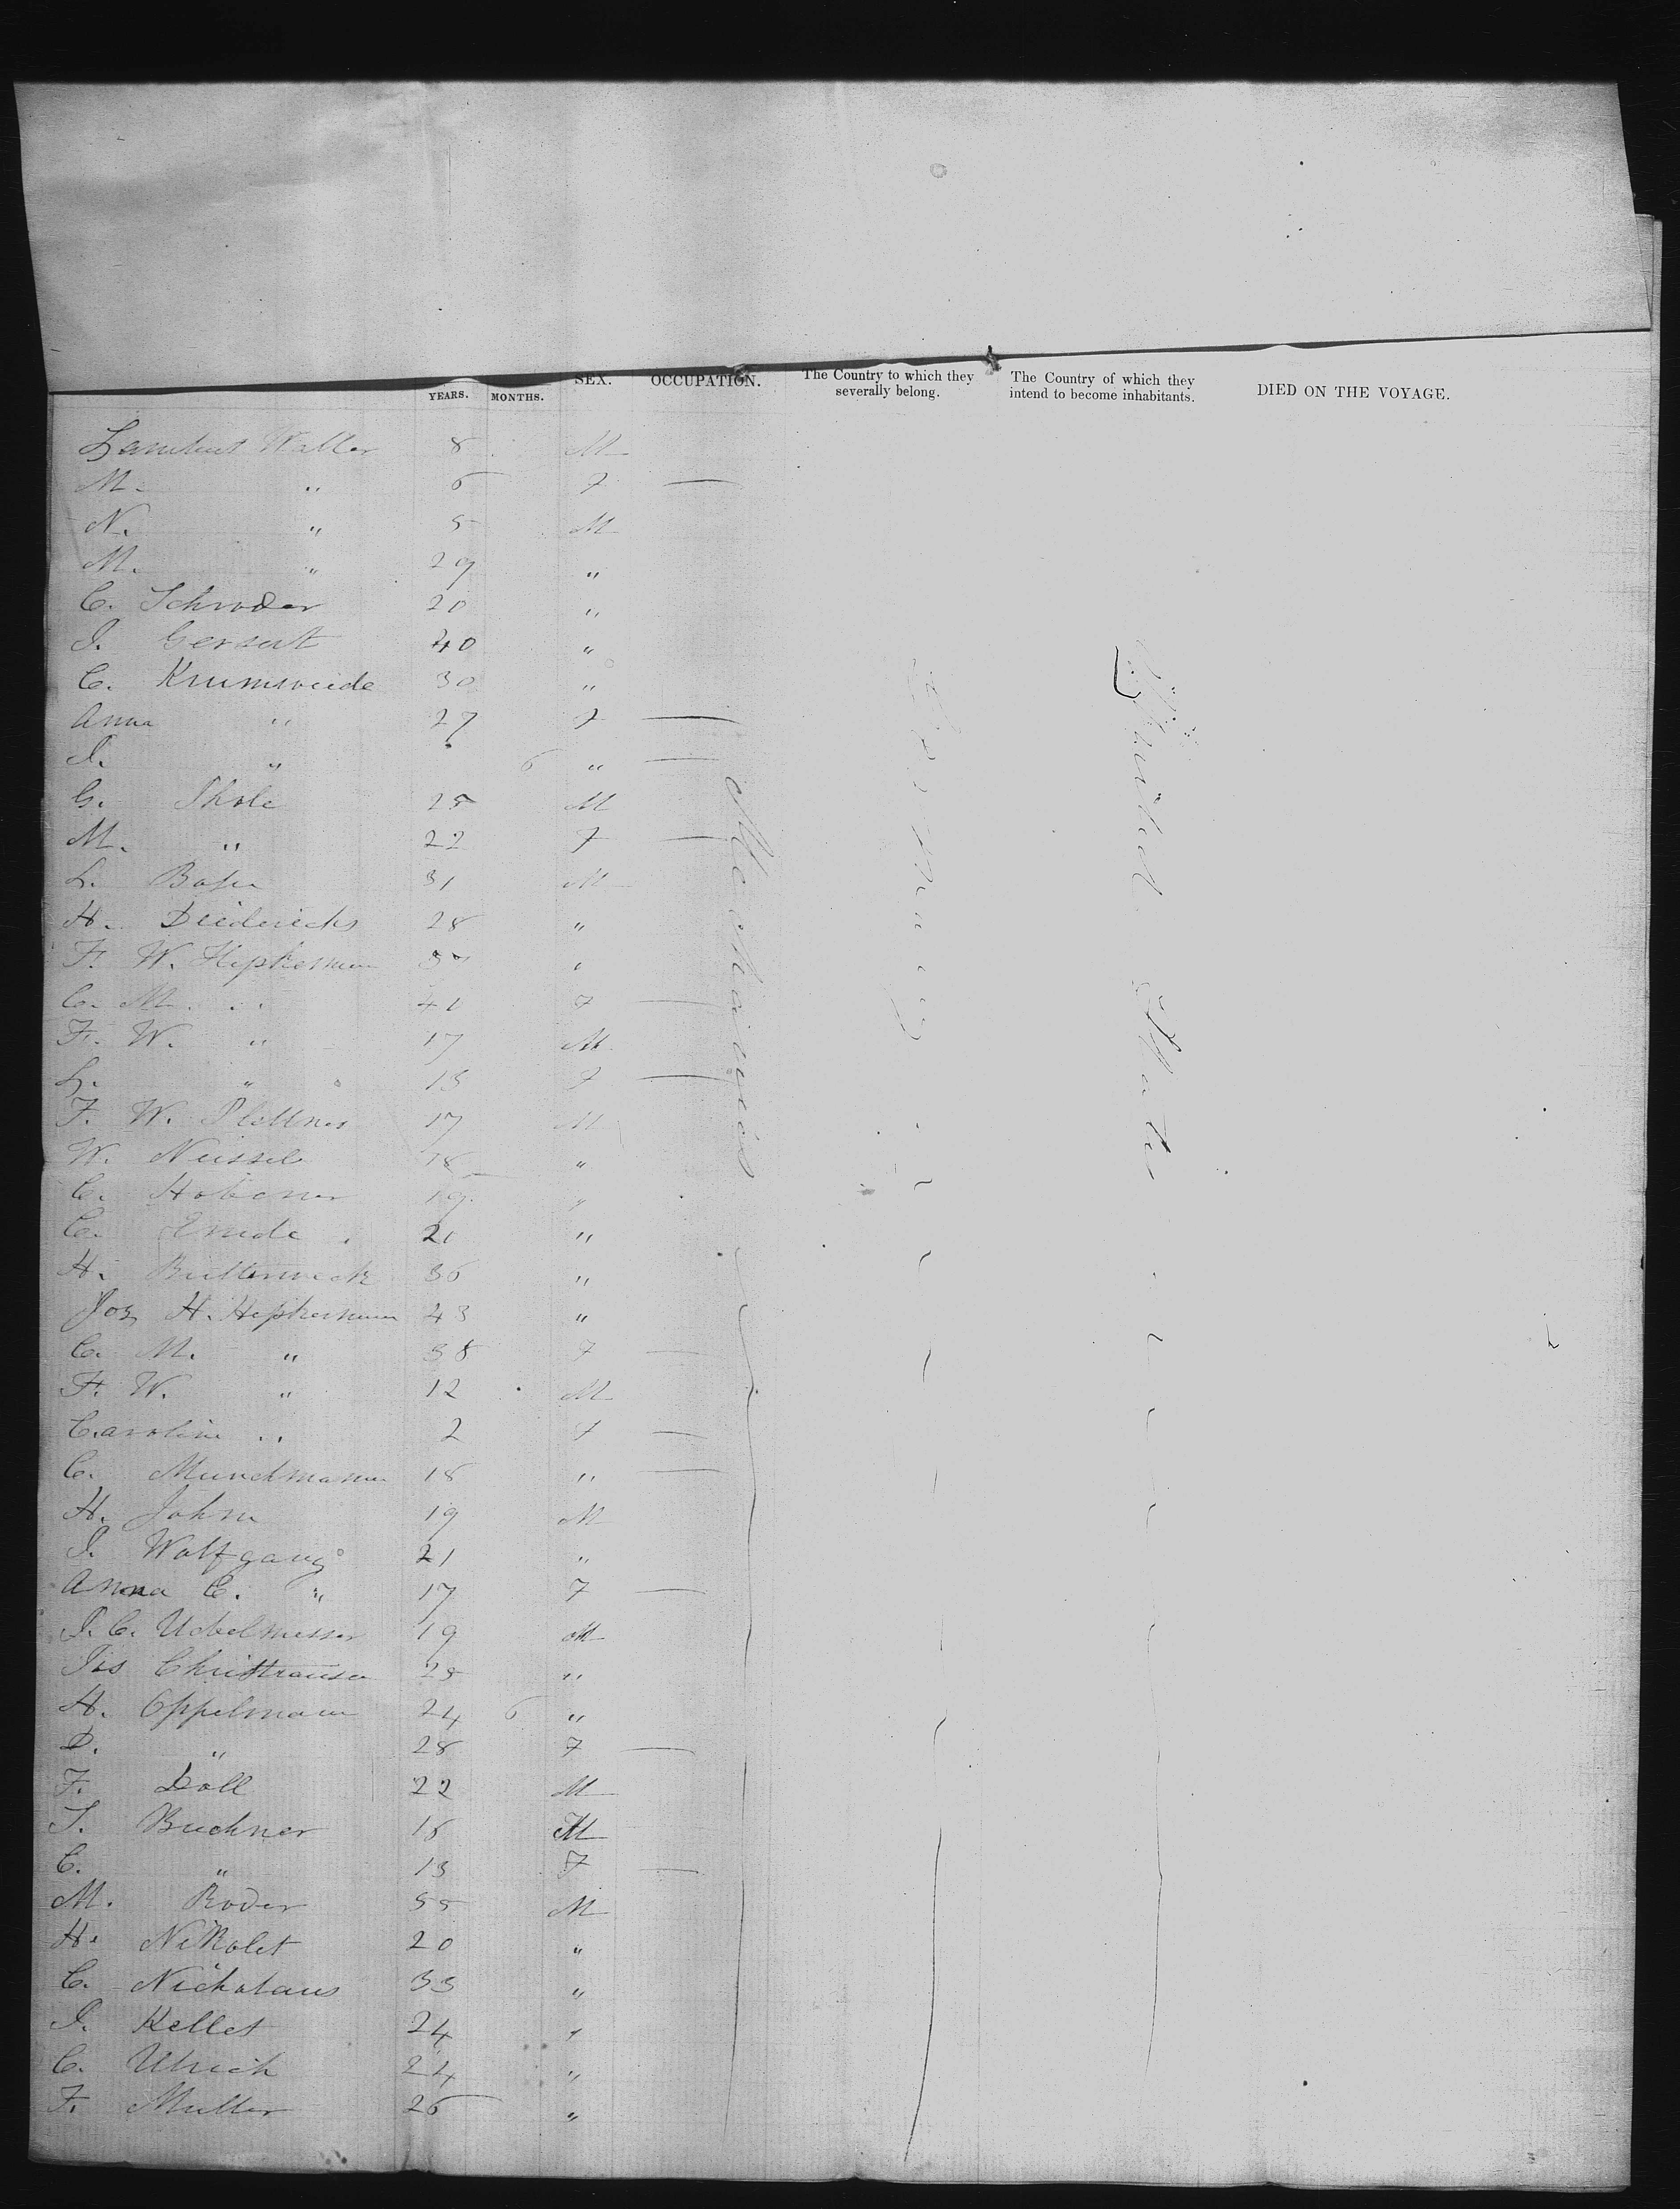 YEARS. MONTHS. SEX. OCCUPATION. The Country to which they severally belong. The Country of which they intend to become inhabitants. DIED ON THE VOYAGE.
Mechanics
Germany
United States
Lambert Waller 8 M
M. " 6 F —
N. " 5 M
M. " 29 "
C. Schroder 20 "
I. Gersut 40 "
C. Krumweide 30 "
Anna " 27 F —
I. " 6 " —
G. Thole 25 M
M. " 22 F —
L. 31 M
H. Diederichs 28 "
F. W. Hepkerman "
C. M. " 41 F —
F. W. " 17 M
L. " 13 F —
F. W. Plettner 17 M
W. Neissel 18 "
C. Hobener 19 "
C. 21 "
H. Butterweck 36 "
Jos H. Hepkerman 43 "
C. M. " 38 F —
F. W. " 12 M
Caroline " 2 F —
C. Mundmann 18 " —
H. John 19 M
I. Wolfgang 21 "
Anna C. " 17 F —
I. C. Uebelmesser 19 M
Jos 25 "
H. Oppelmann 24 6 "
D. " 28 F —
F. Doll 22 M
T. Buchner 18 M
C. " 13 F —
M. Roder 55 M
H. Nikolet 20 "
C. Nickolaus 33 "
I. Kellet 24 "
C. Ulrich 24 "
F. Muller 26 "